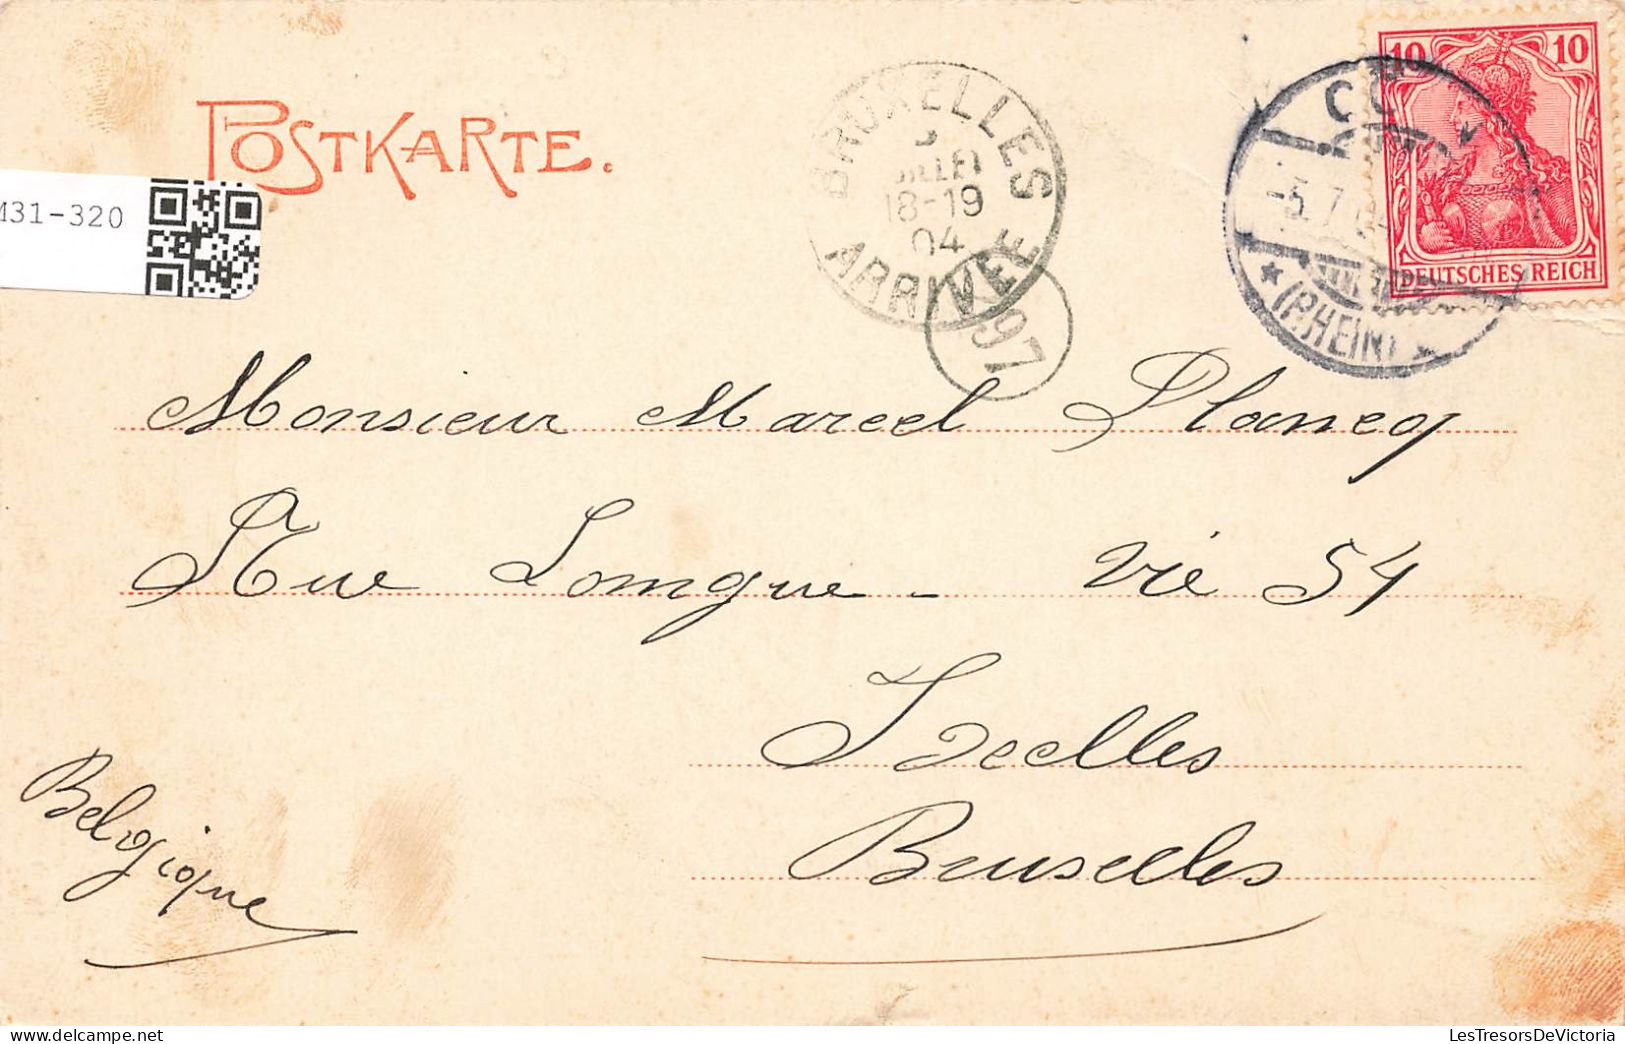 POSTKARTE.
M31-320
BRUXELLES
5
JUILLET
18-19
04
ARRIVÉE
97
CÖLN
-5.7.04
* (RHEIN) *
10 10
DEUTSCHES REICH
Monsieur Marcel Plancq
Rue Longue - Vie 54
Ixelles
Bruxelles
Belgique
LesTresorsDeVictoria